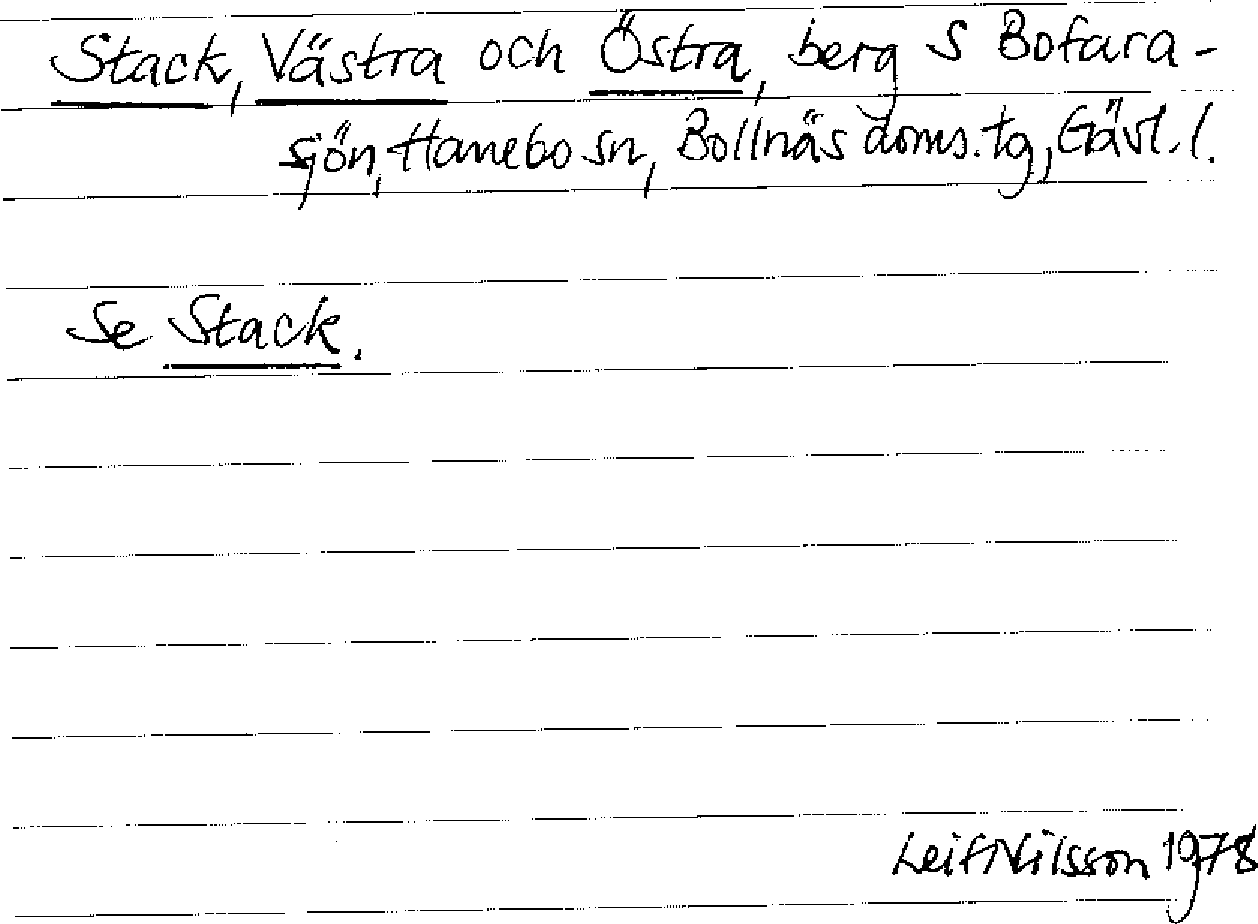 Stack, Västra och Östra, berg S Bofara-
sjön, Hanebo sn, Bollnäs doms. tg, Gävl. l.
Se Stack.
Leif Nilsson 1978